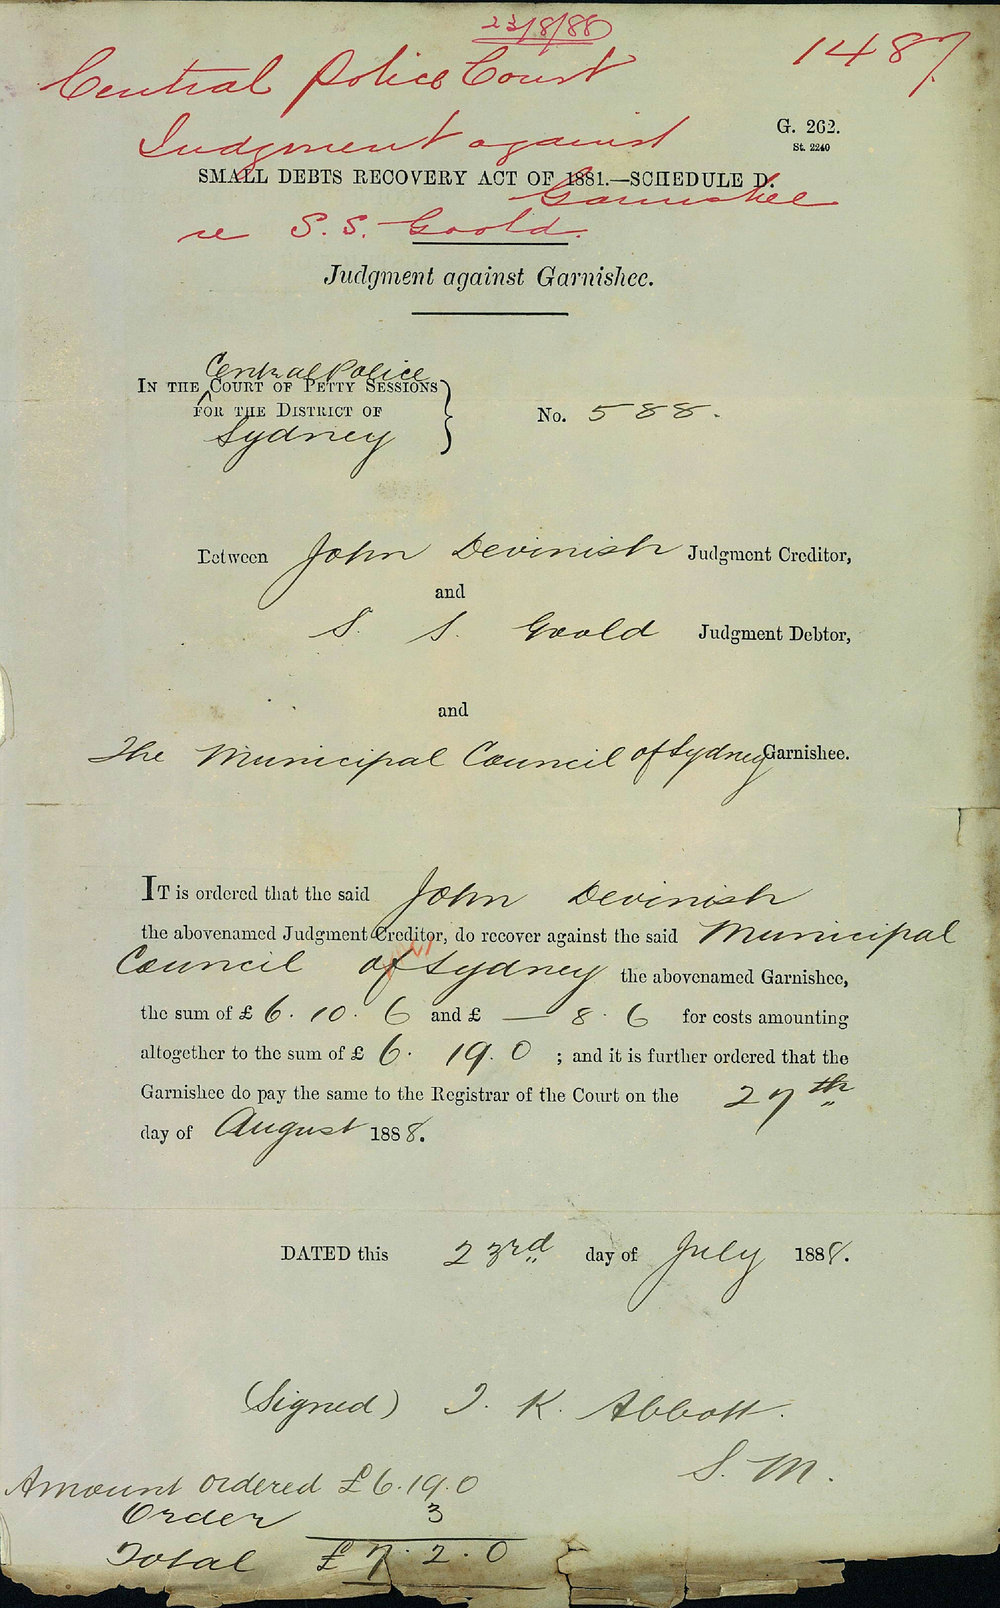 23/8/88
1487
Central Police Court
Judgment against
G. 262.
St. 2240
SMALL DEBTS RECOVERY ACT OF 1881.—SCHEDULE D.
Garnishee
re S. S. Goold.
Judgment against Garnishee.
Central Police
IN THE COURT OF PETTY SESSIONS
FOR THE DISTRICT OF
Sydney
No. 588.
Between John Devinish Judgment Creditor,
and
S. S. Goold Judgment Debtor,
and
The Municipal Council of Sydney Garnishee.
IT is ordered that the said John Devinish
the abovenamed Judgment Creditor, do recover against the said Municipal
Council of Sydney the abovenamed Garnishee,
the sum of £ 6. 10. 6 and £ — 8. 6 for costs amounting
altogether to the sum of £ 6. 19. 0 ; and it is further ordered that the
Garnishee do pay the same to the Registrar of the Court on the 27th
day of August 1888.
DATED this 23rd day of July 1888.
(Signed) J. K. Abbott.
S. M.
Amount ordered £6.19.0
Order 3
Total £7.2.0